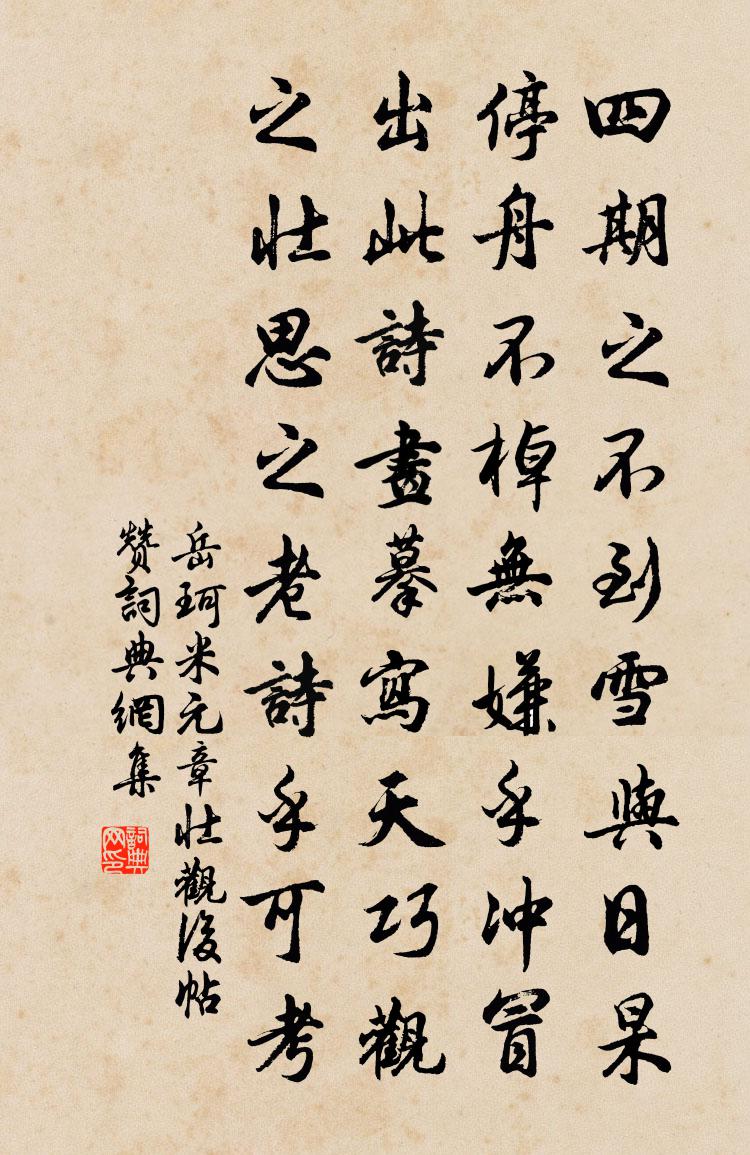 四期之不到雪與日杲
停舟不棹無嫌乎沖冒
出此詩畫摹寫天巧觀
之壯思之老詩乎可考
岳珂米元章壯觀後帖
贊詞典網集
詞典網印